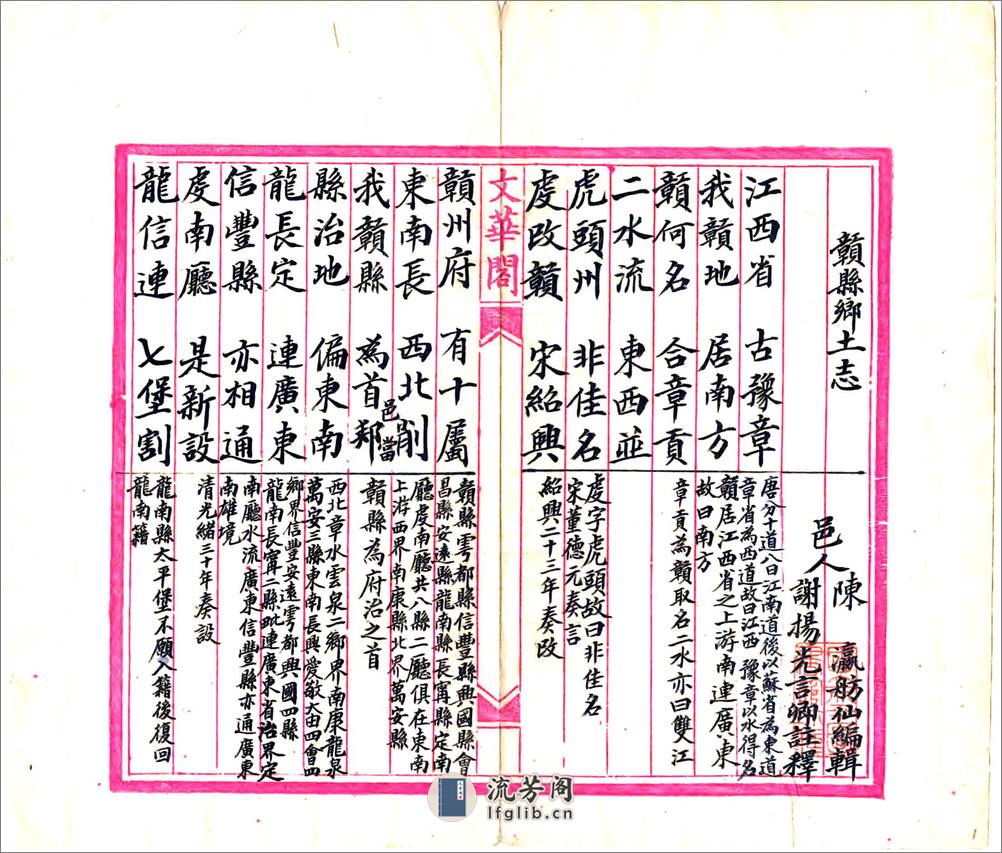 贛縣鄉土志
邑人 陳瀛舫仙編輯
謝揚光言卿註釋
江西省 古豫章
唐分十道八曰江南道後以蘇省為東道
章省為西道故曰江西 豫章以水得名
我贛地 居南方
贛居江西省之上游南連廣東
故曰南方
贛何名 合章貢
章貢為贛取名二水亦曰雙江
二水流 東西並
虎頭州 非佳名
虔字虎頭故曰非佳名
宋董德元奏言
虔改贛 宋紹興
紹興二十三年奏改
文華閣
贛州府 有十屬
贛縣雩都縣信豐縣興國縣會
昌縣安遠縣龍南縣長寧縣定南
東南長 西北削
廳虔南廳共八縣二廳俱在東南
上游西界南康縣北界萬安縣
我贛縣 為首邑當郑
贛縣為府治之首
縣治地 偏東南
西北章水雲泉二鄉界南康龍泉
萬安三縣東南長興愛敬大由四會四
鄉界信豐安遠雩都興國四縣
龍長定 連廣東
龍南長寧二縣毗連廣東省治界定
南廳水流廣東信豐縣亦通廣東
信豐縣 亦相通
南雄境
虔南廳 是新設
清光緒三十年奏設
龍信連 七堡割
龍南縣太平堡不願入籍後復回
龍南籍
流芳阁
lfglib.cn